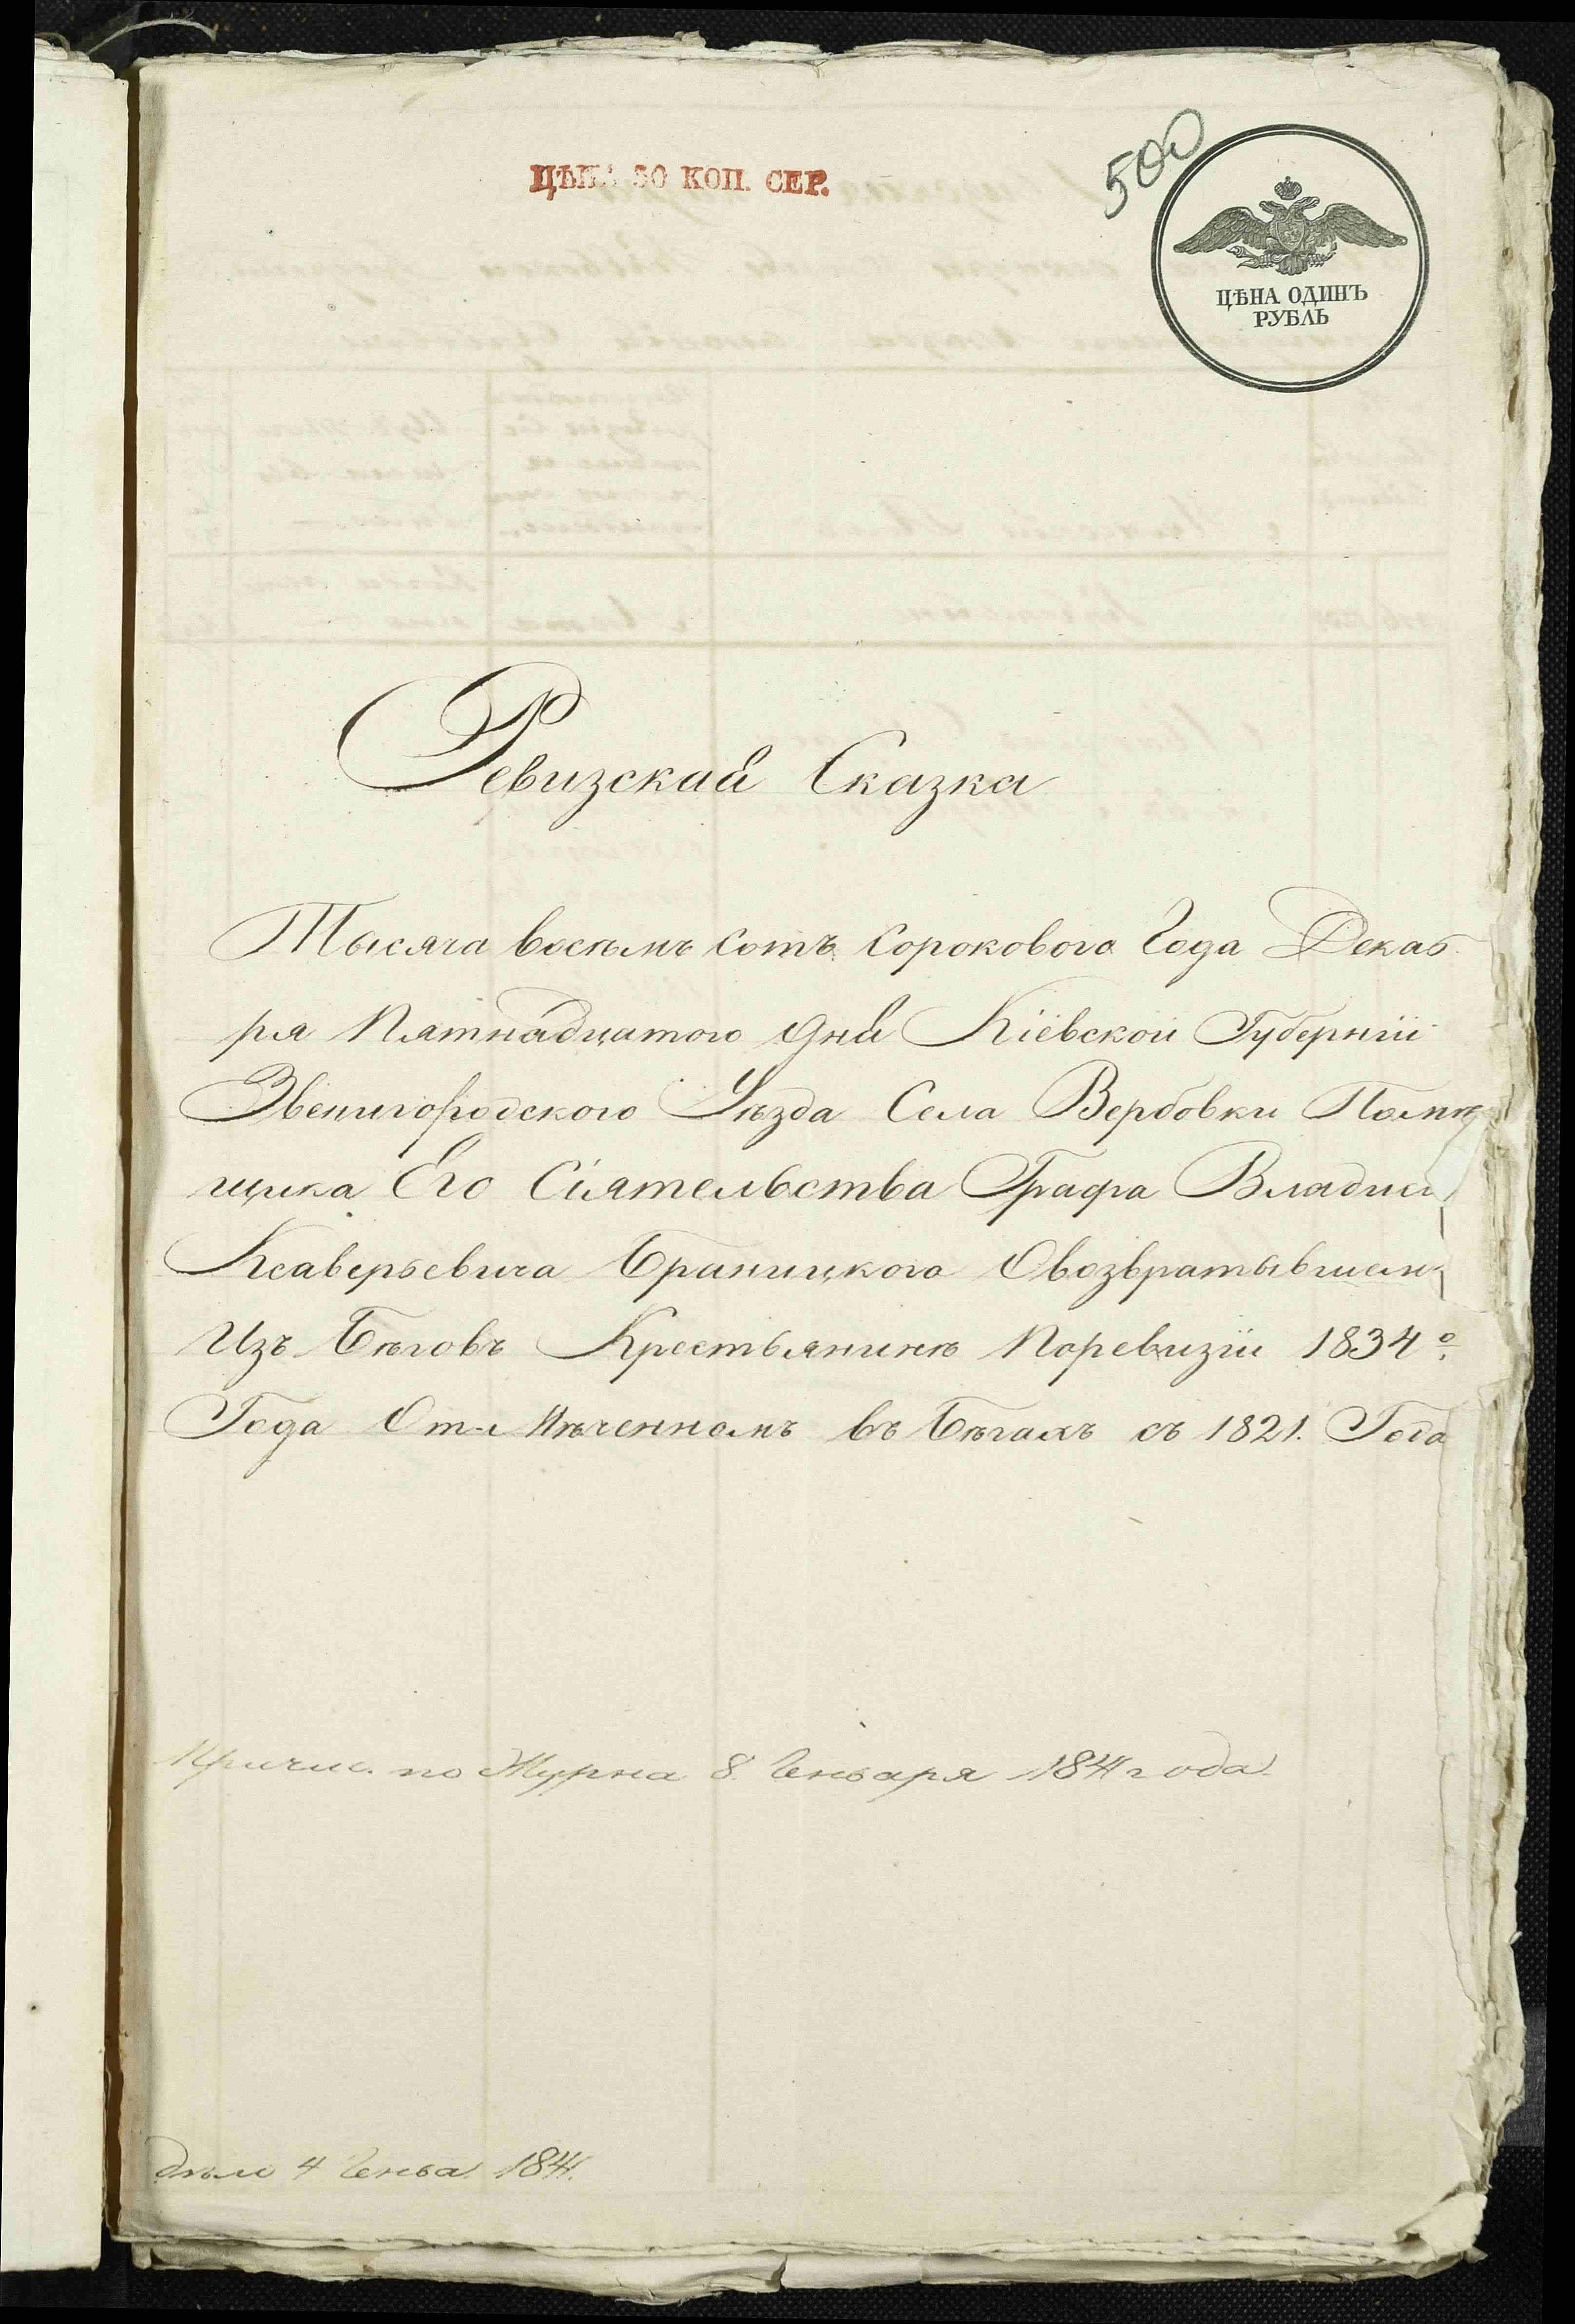 ЦѢНА 30 КОП. СЕР.
500
ЦѢНА ОДИНЪ
РУБЛЬ
Ревизская Сказка
Тысяча восѣмь сотъ сорокового Года Декаб
ря Пятнадцатого дня Кіевской Губерніи
Звенигородского Уѣзда Села Вербовки Помѣ
щика Его Сіятельства Графа Владис
Ксаверьевича Браницкого Овозвратывшемъ
Изъ Бѣговъ Крестьянинѣ Поревизіи 1834º
Года Отмѣченномъ въ Бѣгахъ съ 1821. Года
Причис. по Журна 8. Генваря 1841 года.
4 Генва 1841.